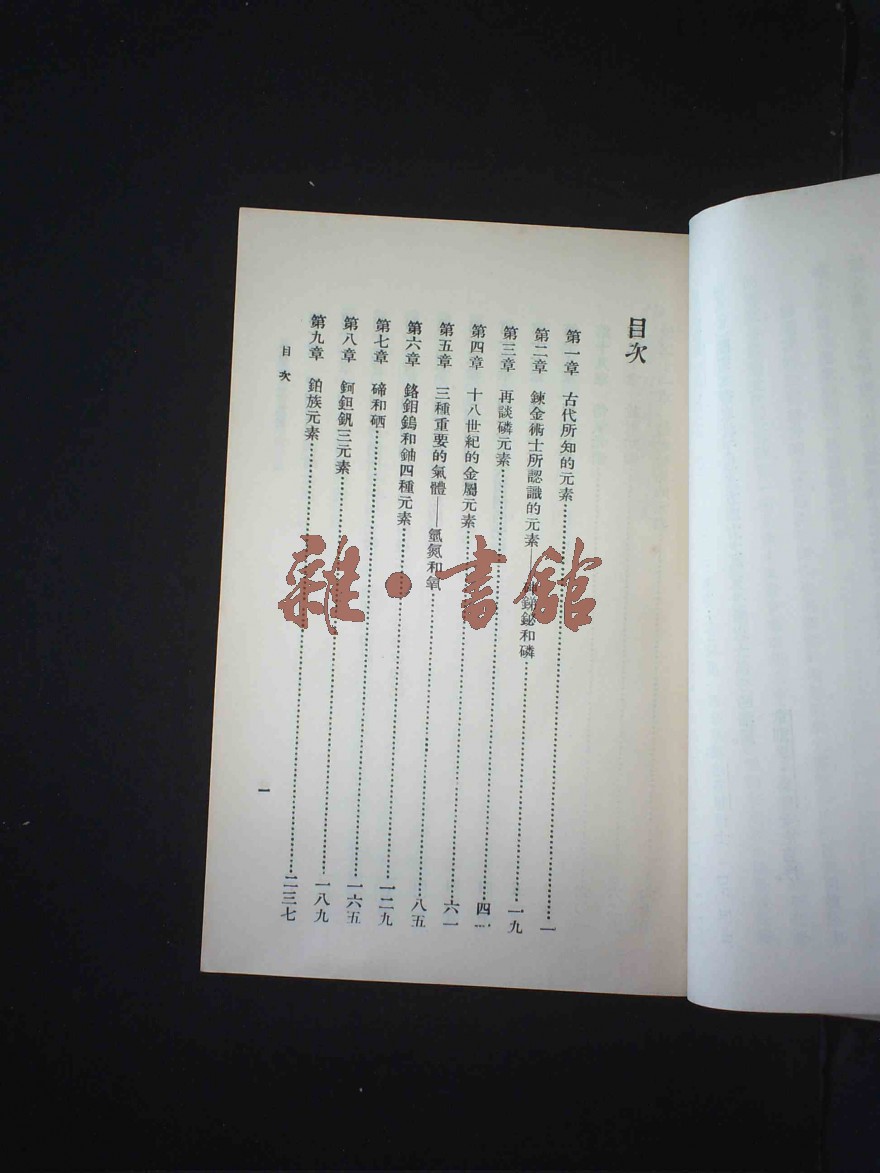 目次
第一章 古代所知的元素……一
第二章 鍊金術士所認識的元素——砷銻鉍和磷……一九
第三章 再談磷元素……四
第四章 十八世紀的金屬元素……六一
第五章 三種重要的氣體——氫氮和氧……八五
第六章 鉻鉬鎢和鈾四種元素……一二九
第七章 碲和硒……一六五
第八章 鈳鉭釩三元素……一八九
第九章 鉑族元素……二三七
目次
一
雜·書館